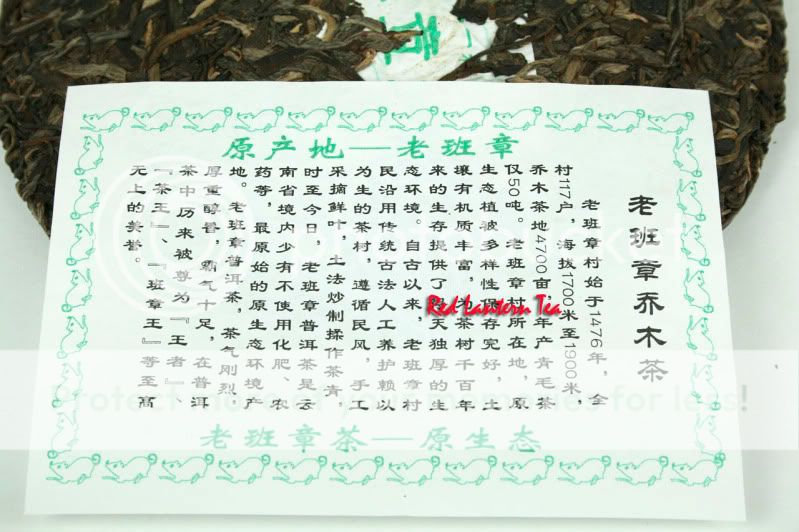 原产地—老班章
老班章乔木茶
老班章村始于1476年，全
村117户，海拔1700米至1900米，
乔木茶地4700亩，年产青毛茶
仅50吨。老班章村所在地，原
生态植被多样性保存完好，土
壤有机质丰富，为茶村千百年
来的生存提供了天独厚的生
态环境。自古以来，老班章村
民沿用传统古法人工养护赖以
为生的茶村，遵循民风，手工
采摘鲜叶，土法炒制揉作茶青。
时至今日，老班章普洱茶是云
南省境内少有不使用化肥、农
药等，最原始的原生态环境产
地。老班章普洱茶，茶气刚烈，
厚重醇香，霸气十足，在普洱
茶中历来被尊为『王者』、
『茶王』、『班章王』等至高
无上的美誉。
老班章茶—原生态
Red Lantern Tea
photobucket
Protect more of your memories for less!